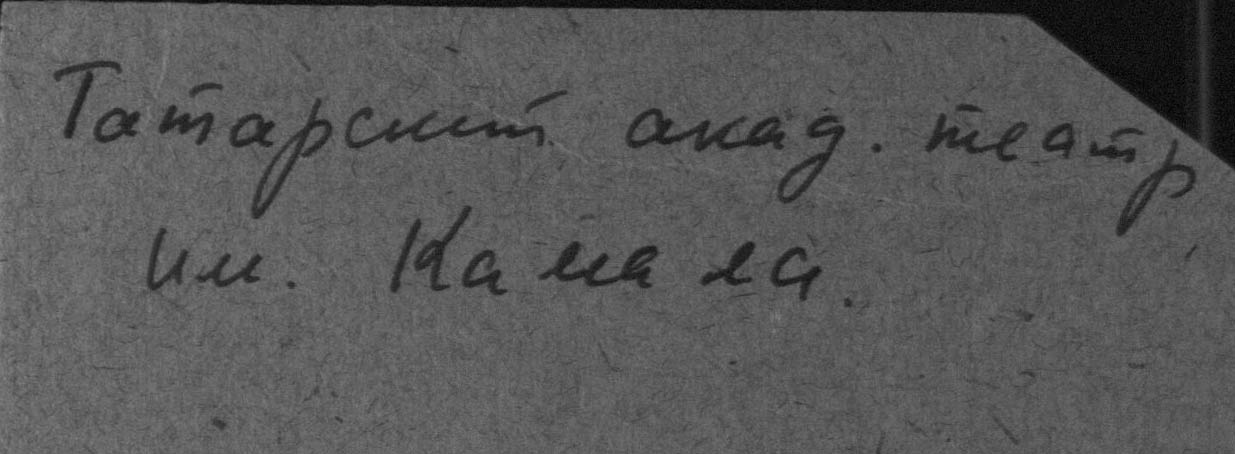 Татарский акад. театр
им. Камала.